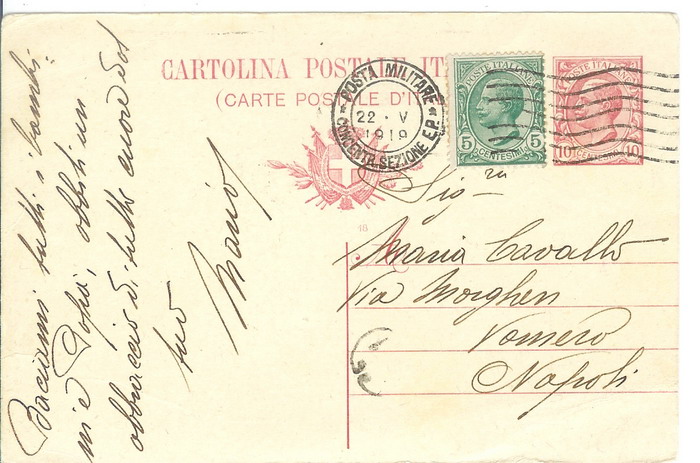 CARTOLINA POSTALE IT
(CARTE POSTALE D'IT
POSTA MILITARE
22 · V
1919
CONCENTR. SEZIONE E.P.
POSTE ITALIANE
5 5
CENTESIMI
POSTE ITALIANE
10 10
CENTESIMI
18
Sig.ra
Maria Cavallo
Via Morghen
Vomero
Napoli
Baciami tutti i bambi-
ni e Sofia, abbiti un
abbraccio di tutto cuore dal
tuo Mario